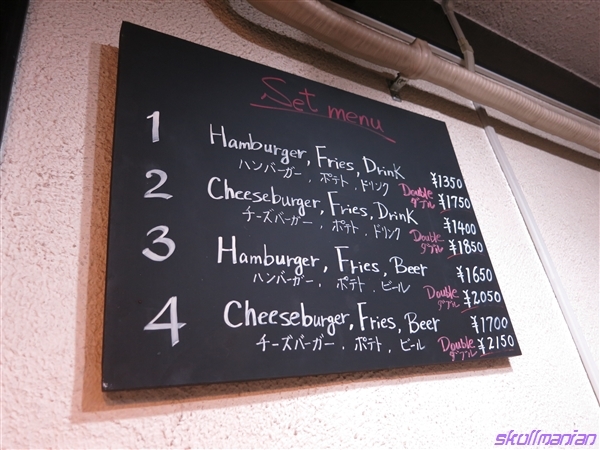 Set menu
1 Hamburger, Fries, Drink ¥1350
ハンバーガー . ポテト . ドリンク Double ダブル ¥1750
2 Cheeseburger, Fries, Drink ¥1400
チーズバーガー . ポテト . ドリンク Double ダブル ¥1850
3 Hamburger, Fries, Beer ¥1650
ハンバーガー . ポテト . ビール Double ダブル ¥2050
4 Cheeseburger, Fries, Beer ¥1700
チーズバーガー . ポテト . ビール Double ダブル ¥2150
skullmanian